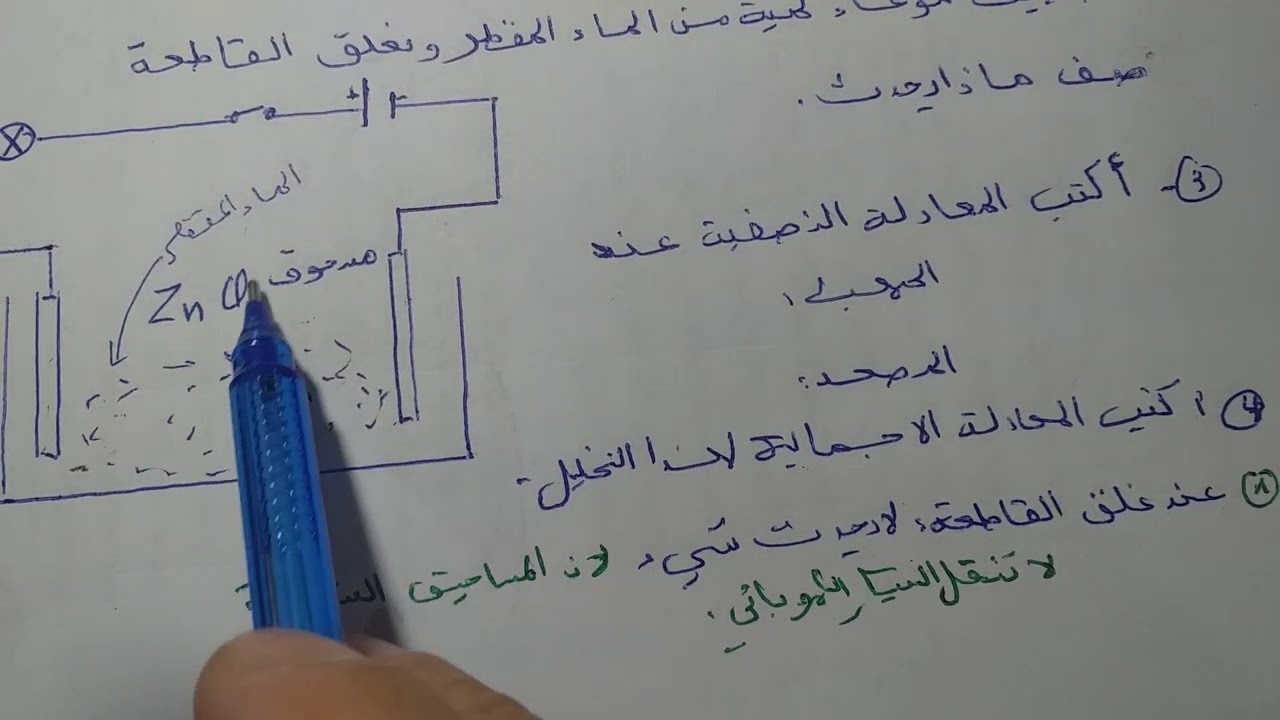 كمية من الماء المقطر ونغلق القاطعة
صف ماذا يحدث .
+
X
الماء المقطر
مسحوق Zn
③- أكتب المعادلة النصفية عند
المهبط :
المصعد :
④ اكتب المعادلة الاجمالية لهذا التحليل .
① عند غلق القاطعة، لا يحدث شيء، لان المساحيق
لا تنقل التيار الكهربائي .